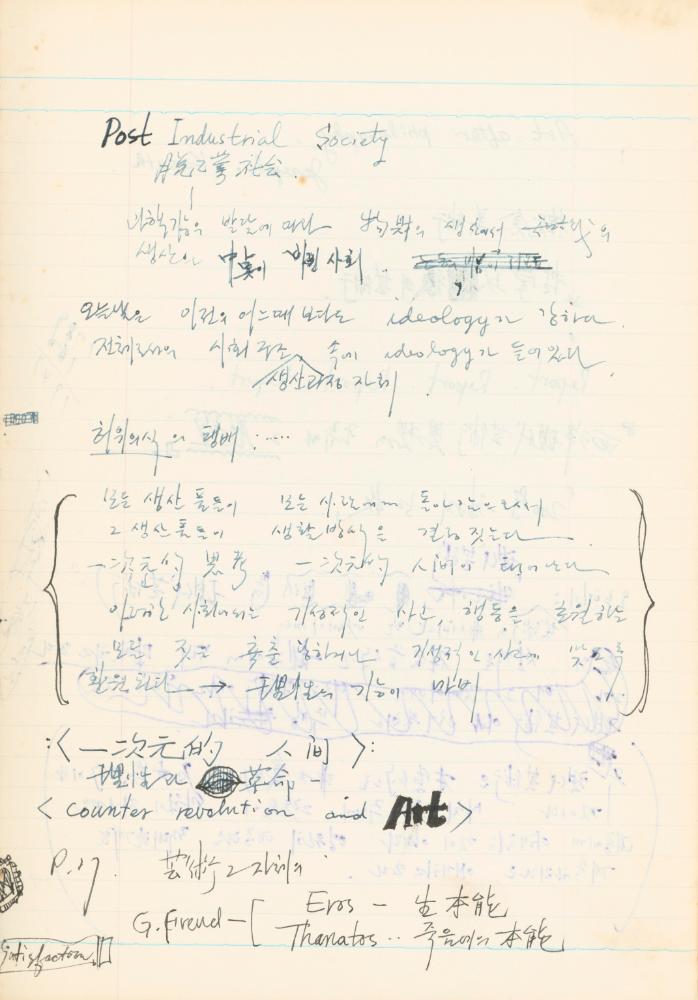 Post Industrial Society
脱工業社会.
발달에 따라 物質의 생산에서
생산이 사회.
오늘날은 이전의 어느때 보다도 ideology가 강하다.
전체로서의 사회구조 속에 ideology가 들어있다.
생산과정 자체
허위의식의 팽배: .....
모든 생산품들이 모든 사람에게 돌아감으로써
그 생산품들이 생활방식을 결정 짓는다
一次元的 思考 一次元的 人間이 태어난다
이러한 사회에서는 기성적인 사고, 행동을 초월하는
모든 것은 축출 당하거나 기성적인 사회에
환원된다 → 理性의 기능이 마비
:<一次元的 人間>:
理性과 革命-
< counter revolution and Art >
P.17. 芸術 그 자체의
G. Freud - [ Eros - 生本能
Thanatos .. 죽음에의 本能
Satisfaction